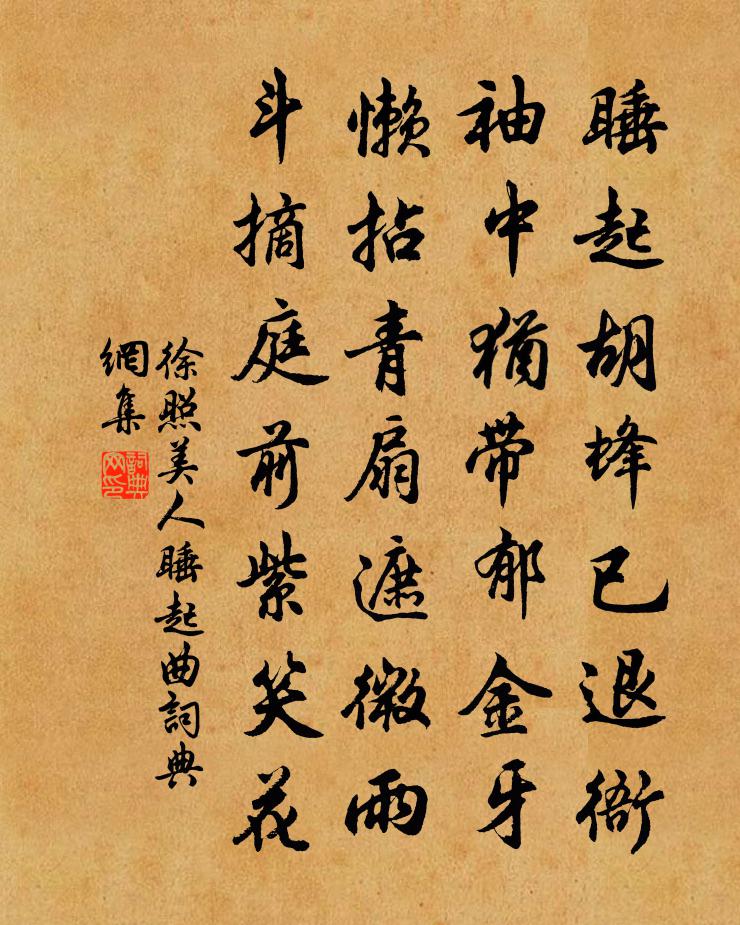 睡起胡蜂已退衙
袖中犹带郁金牙
懒拈青扇遮微雨
斗摘庭前紫笑花
徐照美人睡起曲詞典
網集
詞典網印